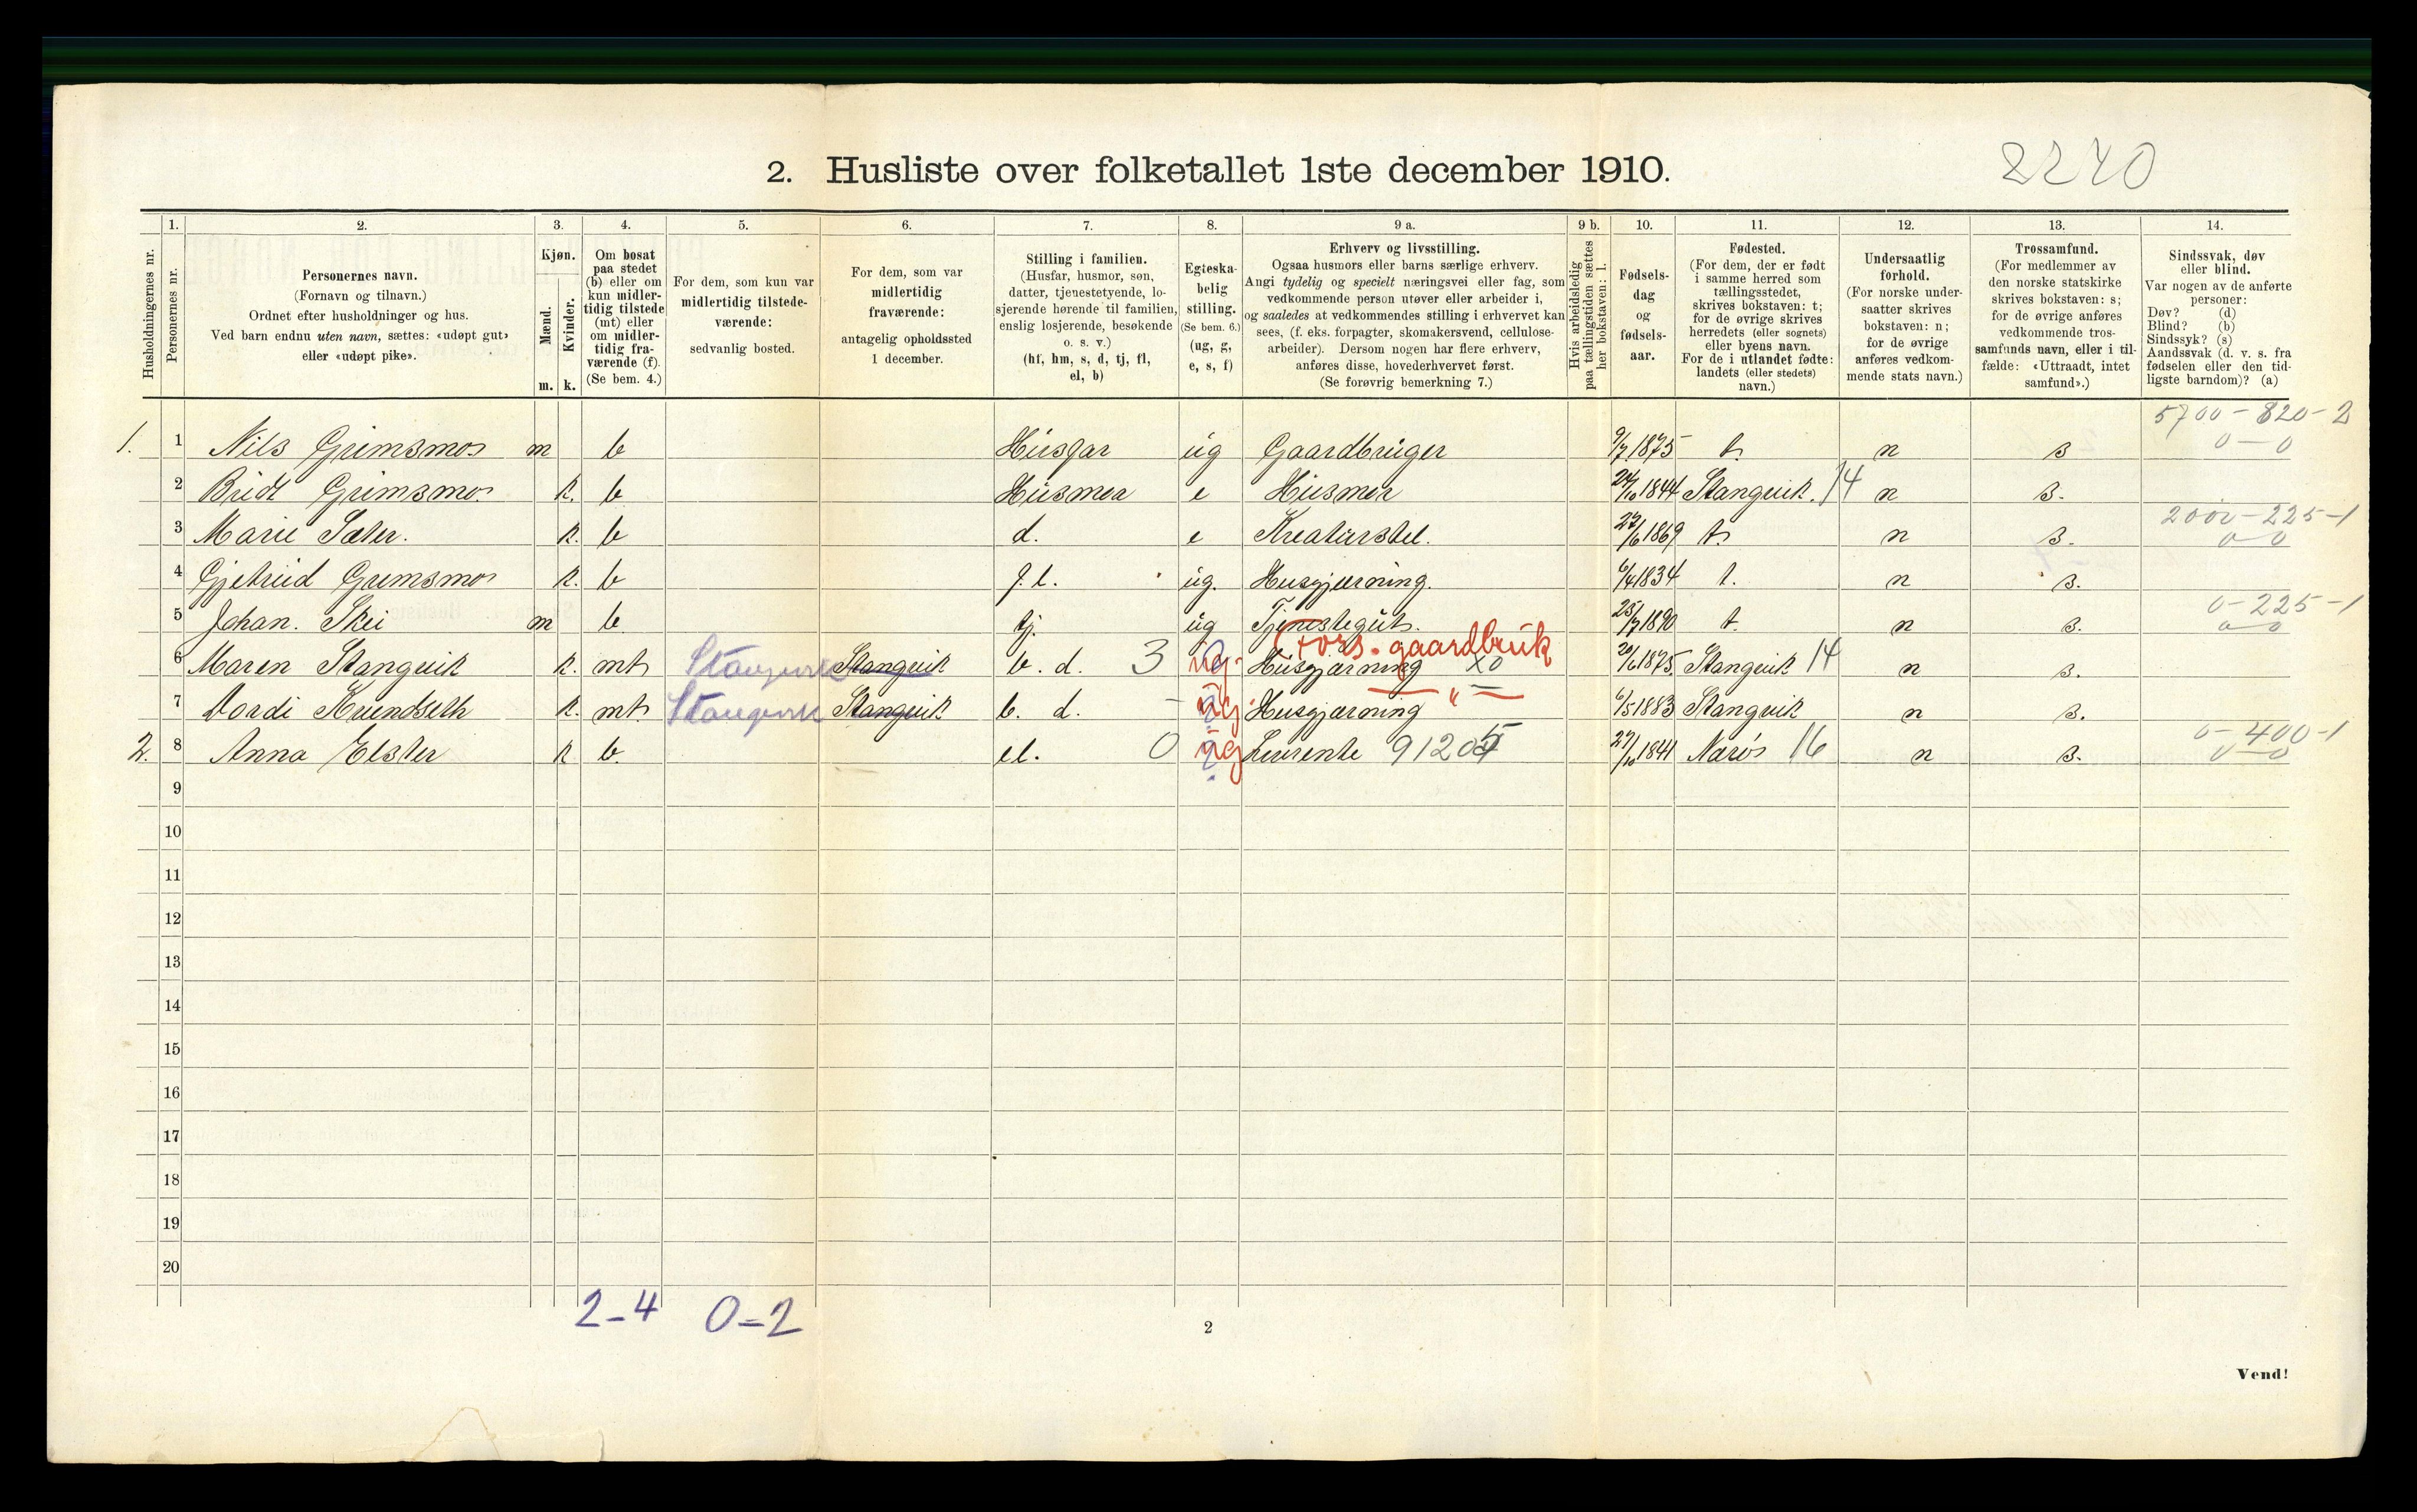 2. Husliste over folketallet 1ste december 1910.
2240
1. 2. 3. 4. 5. 6. 7. 8. 9 a. 9 b. 10. 11. 12. 13. 14.
Husholdningernes nr.
Personernes nr.
Personernes navn.
(Fornavn og tilnavn.)
Ordnet efter husholdninger og hus.
Ved barn endnu uten navn, sættes: «udøpt gut»
eller «udøpt pike».
Kjøn.
Mænd.
Kvinder.
m. k.
Om bosat
paa stedet
(b) eller om
kun midler-
tidig tilstede
(mt) eller
om midler-
tidig fra-
værende (f).
(Se bem. 4.)
For dem, som kun var
midlertidig tilstede-
værende:
sedvanlig bosted.
For dem, som var
midlertidig
fraværende:
antagelig opholdssted
1 december.
Stilling i familien.
(Husfar, husmor, søn,
datter, tjenestetyende, lo-
sjerende hørende til familien,
enslig losjerende, besøkende
o. s. v.)
(hf, hm, s, d, tj, fl,
el, b)
Egteska-
belig
stilling.
(Se bem. 6.)
(ug, g,
e, s, f)
Erhverv og livsstilling.
Ogsaa husmors eller barns særlige erhverv.
Angi tydelig og specielt næringsvei eller fag, som
vedkommende person utøver eller arbeider i,
og saaledes at vedkommendes stilling i erhvervet kan
sees, (f. eks. forpagter, skomakersvend, cellulose-
arbeider). Dersom nogen har flere erhverv,
anføres disse, hovederhvervet først.
(Se forøvrig bemerkning 7.)
Hvis arbeidsledig
paa tællingstiden sættes
her bokstaven: l.
Fødsels-
dag
og
fødsels-
aar.
Fødested.
(For dem, der er født
i samme herred som
tællingsstedet,
skrives bokstaven: t;
for de øvrige skrives
herredets (eller sognets)
eller byens navn.
For de i utlandet fødte:
landets (eller stedets)
navn.)
Undersaatlig
forhold.
(For norske under-
saatter skrives
bokstaven: n;
for de øvrige
anføres vedkom-
mende stats navn.)
Trossamfund.
(For medlemmer av
den norske statskirke
skrives bokstaven: s;
for de øvrige anføres
vedkommende tros-
samfunds navn, eller i til-
fælde: «Uttraadt, intet
samfund».)
Sindssvak, døv
eller blind.
Var nogen av de anførte
personer:
Døv? (d)
Blind? (b)
Sindssyk? (s)
Aandssvak (d. v. s. fra
fødselen eller den tid-
ligste barndom)? (a)
5700-820-2
1. 1 Nils Grimsmo m b Husfar ug Gaardbruger 9/7 1875 t. n s 0-0
2 Bridt Grimsmo. k. b Husmor e Husmor 24/10 1844 Stangvik. 14 n s.
2000-225-1
3 Marie Sæter. k. b d. e Kreaturstel. 27/6 1869 t. n s. 0-0
4 Gjetrud Grimsmo k. b f. l. ug. Husgjærning. 6/4 1834 t. n s.
0-225-1
5 Johan. Skei m b tj. ug Tjenestegut. 25/7 1890 t. n s. 0-0
Fors. gaardbruk
6 Maren Stangvik k. mt Stangvik Stangvik b. d. 3 ug. Husgjærning x0 20/6 1875. Stangvik 14 n s.
7 Dordi Kvendseth k. mt Stangvik Stangvik b. d. - ug. Husgjærning " 6/5 1883 Stangvik n s.
0-400-1
2. 8 Anna Elster k b. el. 0 ug Livrente 91205 27/10 1841 Nærø 16 n s. 0-0
9
10
11
12
13
14
15
16
17
18
19
20
2-4 0-2
2
Vend!